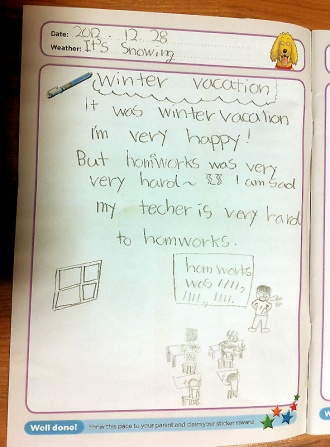 Date: 2012 . 12. 28
Weather: It's Snowing
Winter vacation
It was winter vacation
I'm very happy!
But homworks was very
very hard~ I am sad
my techer is very hard
to homworks.
homworks
was ////,
////, ////.
Well done! Show this page to your parent and claim your sticker reward.
W